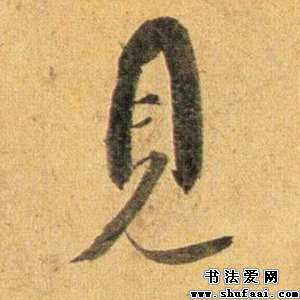 見
书法爱网
www.shufaai.com